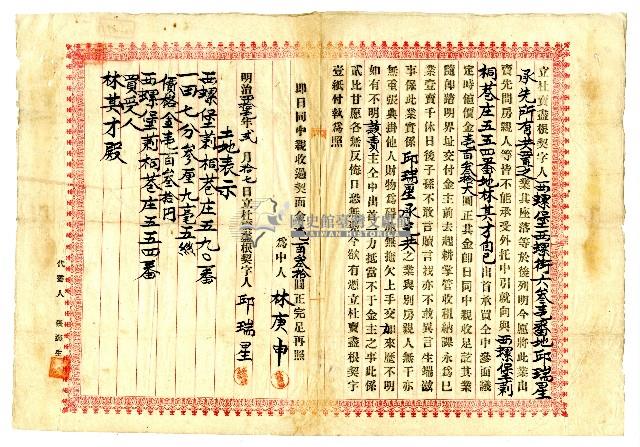 立杜賣盡根契字人西螺堡西螺街六叁壱番地邱瑞星
承先所有共業之業其座落等於後列明今愿將此業出
賣先問房親人等皆不能承受外托中引就向與西螺堡剌
桐巷庄五五四番地林其才自己出首承買仝中參面議
定時値價金壱百叁拾大圓正其金卽日同中親收足訖其業
隨卽踏明界址交付金主前去起耕掌管收租納課永爲己
業壹賣千休日後子孫不敢言贖言找亦不敢異言生端滋
事保此業實係邱瑞星承先共之業與別房親人無干亦
無重張典掛他人財物爲碍亦無拖欠上手交加來歷不明
如有不明該賣主仝中出首抵當不干金主之事此係
貳比甘愿各無反悔日恐無憑今欲有憑立杜賣盡根契字
壹紙付執爲照
卽日同中親收過契面金壱百叁拾圓正完足再照
爲中人 林庚申
明治 年貳月拾七日立杜賣盡根契字人 邱瑞星
土地表示
西螺堡剌桐巷庄五九〇番
一田七分參厘九毫五絲
價格金壱百叁拾円
西螺堡剌桐巷庄五五四番
買受人
林其才殿
代書人
歷史館臺灣文獻
TAIWAN HISTORICA